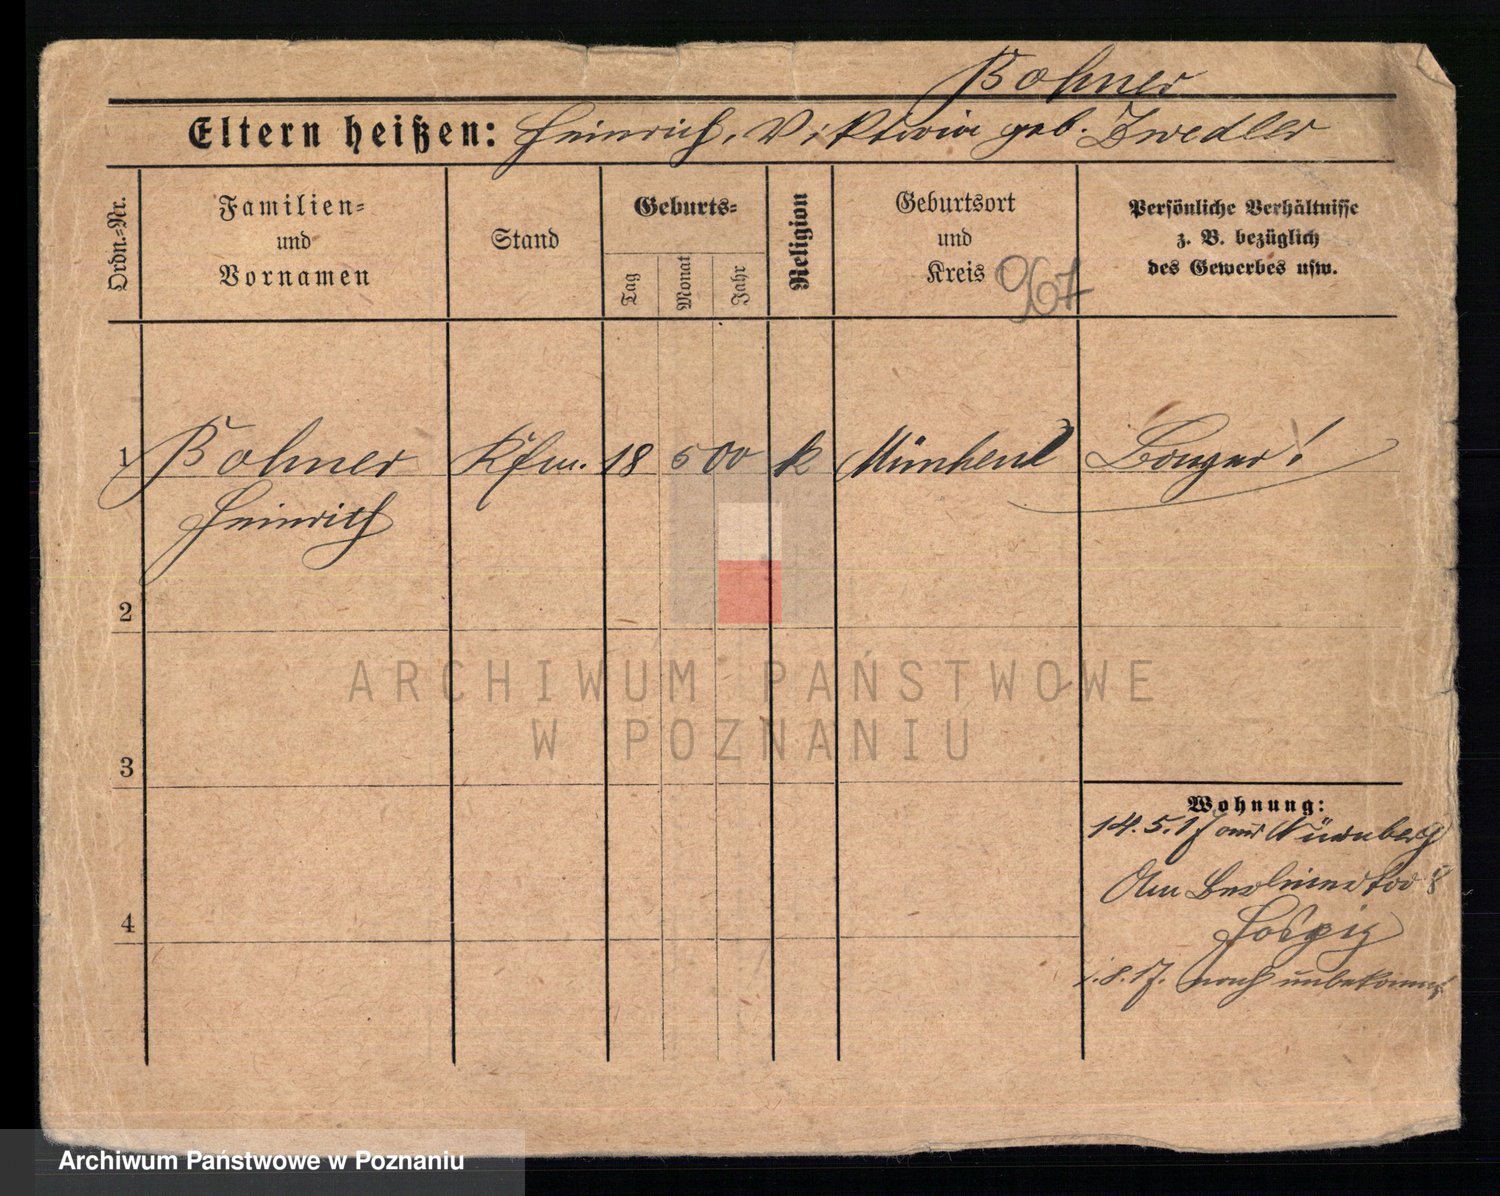 Bohner
Eltern heißen: Heinrich, Viktoria geb. Zwedler
Ordn.-Nr.
Familien-
und
Vornamen
Stand
Geburts-
Tag
Monat
Jahr
Religion
Geburtsort
und
Kreis
967
Persönliche Verhältnisse
z. B. bezüglich
des Gewerbes usw.
1 Bohner Kfm. 18 5 00 k München
Heinrich
2
3
4
ARCHIWUM PAŃSTWOWE
W POZNANIU
Wohnung:
14.5.17 aus Nürnberg
Am Berlinertor 8
Hospiz
1.8.17. nach unbekannt
Archiwum Państwowe w Poznaniu